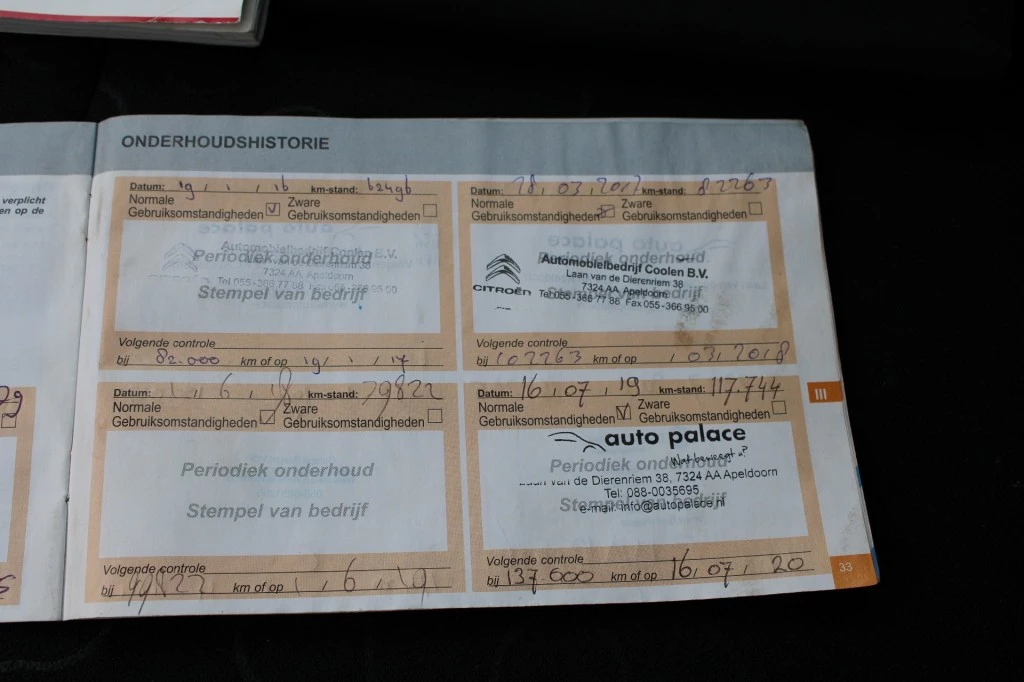 verplicht
en op de
ONDERHOUDSHISTORIE
Datum: 19 / 1 / 16 km-stand: 62496
Normale Gebruiksomstandigheden Zware Gebruiksomstandigheden
Automobielbedrijf Coolen B.V.
Periodiek onderhoud
7324 AA Apeldoorn
Stempel van bedrijf
Volgende controle
bij 82.000 km of op 19 / 1 / 17
Datum: 28, 03, 2017 km-stand: 82263
Normale Gebruiksomstandigheden Zware Gebruiksomstandigheden
auto palace
Periodiek onderhoud
Automobielbedrijf Coolen B.V.
Laan van de Dierenriem 38
7324 AA Apeldoorn
CITROËN Tel 055-366 77 86 Fax 055-366 95 00
Stempel van bedrijf
Volgende controle
bij 102263 km of op , 03, 2018
Datum: 1, 6, 18 km-stand: 79822
Normale Gebruiksomstandigheden Zware Gebruiksomstandigheden
Periodiek onderhoud
Stempel van bedrijf
Volgende controle
bij 99822 km of op 1, 6, 19
Datum: 16, 07, 19 km-stand: 117.744
Normale Gebruiksomstandigheden Zware Gebruiksomstandigheden
auto palace
Wat beweegt u?
Periodiek onderhoud
Laan van de Dierenriem 38, 7324 AA Apeldoorn
Tel: 088-0035695
Stempel van bedrijf
e-mail: info@autopalace.nl
Volgende controle
bij 137.600 km of op 16, 07, 20
III
33